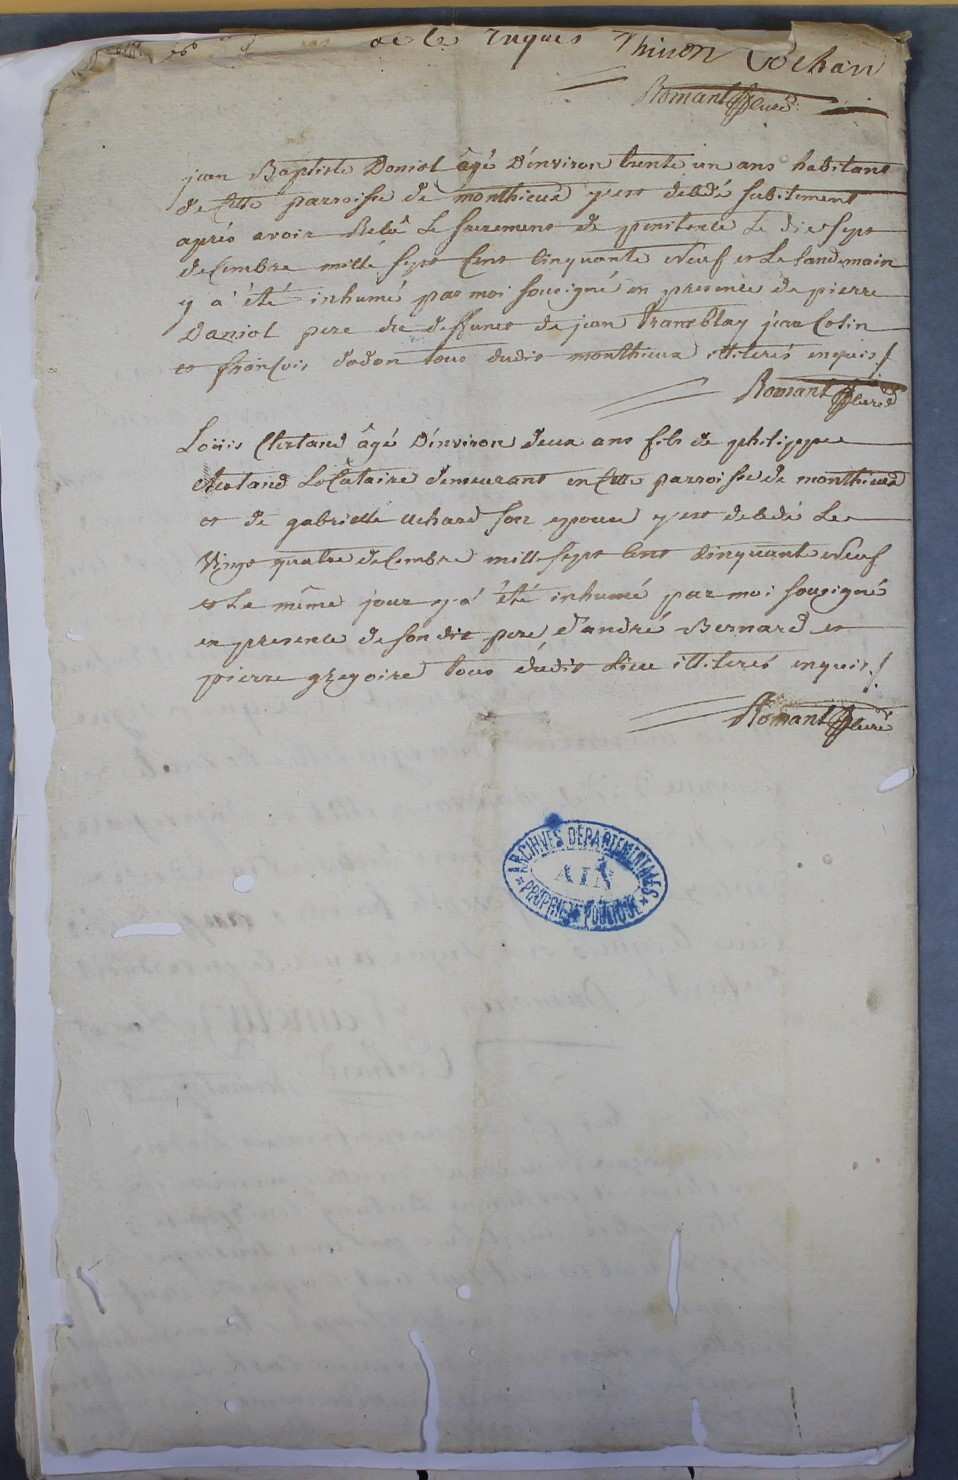 de le requis Thivon Cochan
Romant Curé
jean Baptiste Daniol âgé d'environ trente un ans habitant
de cette parroisse de monthieux y est decedé subitement
aprés avoir Reçû le sacrement de penitence le dix sept
decembre mille sept cent cinquante neuf et le landemain
y a été inhumé par moi sousigné en presence de pierre
Daniol pere du deffunct de jean Tramblay jean Colin
et françois dodon tous dudit monthieux illiterés enquis /
Romant Curé
Loüis Chetand âgé d'environ deux ans fils de philippe
Locataire demeurant en cette parroisse de monthieux
et de gabrielle uchard son epouse y est decedé le
vingt quatre decembre mille sept cent cinquante neuf
et le même jour y a été inhumé par moi sousigné
en presence de son dit pere d'andré Bernard et
pierre gregoire tous dudit lieu illiterés enquis /
Romant Curé
ARCHIVES DÉPARTEMENTALES
AIN
PROPRIÉTÉ PUBLIQUE